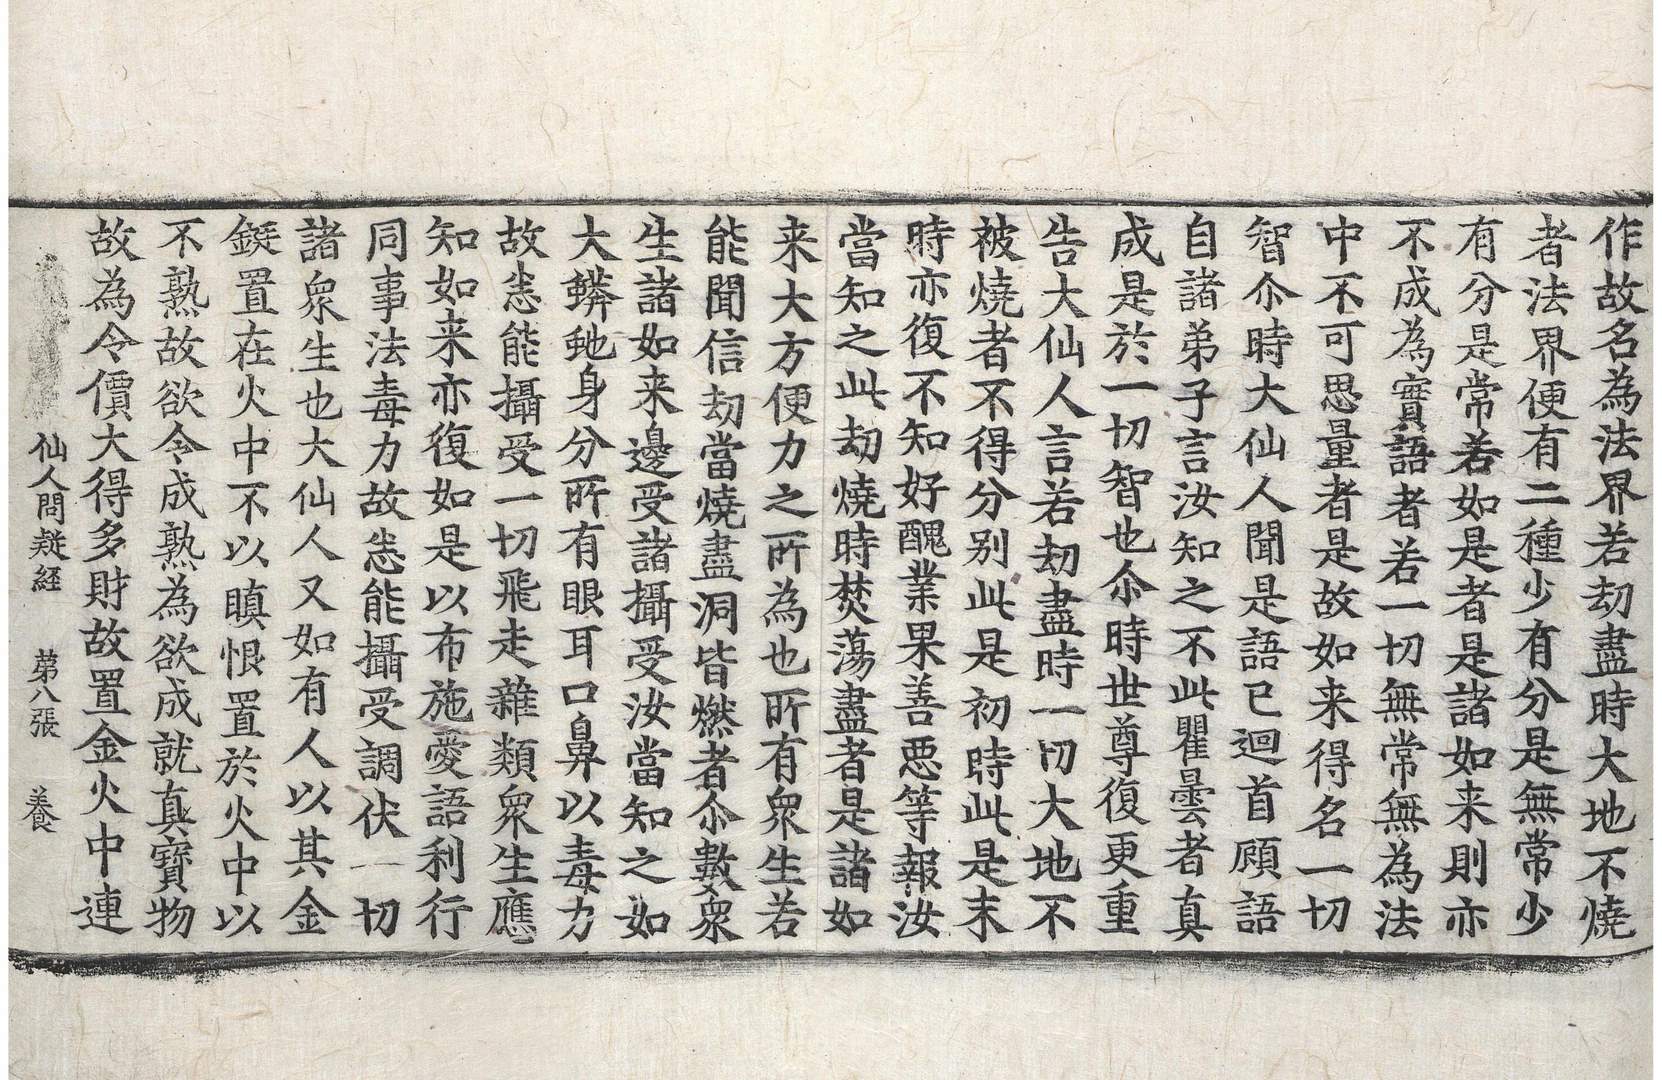 作故名為法界若劫盡時大地不燒
者法界便有二種少有分是無常少
有分是常若如是者是諸如来則亦
不成為實語者若一切無常無為法
中不可思量者是故如来得名一切
智尒時大仙人聞是語已迴首顧語
自諸弟子言汝知之不此瞿曇者真
成是於一切智也尒時世尊復更重
告大仙人言若劫盡時一切大地不
被燒者不得分别此是初時此是末
時亦復不知好醜業果善惡等報汝
當知之此劫燒時焚蕩盡者是諸如
来大方便力之所為也所有衆生若
能聞信劫當燒盡洞皆燃者尒數衆
生諸如来邊受諸攝受汝當知之如
大蟒虵身分所有眼耳口鼻以毒力
故悉能攝受一切飛走雜類衆生應
知如来亦復如是以布施愛語利行
同事法毒力故悉能攝受調伏一切
諸衆生也大仙人又如有人以其金
鋌置在火中不以瞋恨置於火中以
不熟故欲令成熟為欲成就真寶物
故為令價大得多財故置金火中連
仙人問疑経 苐八張 養